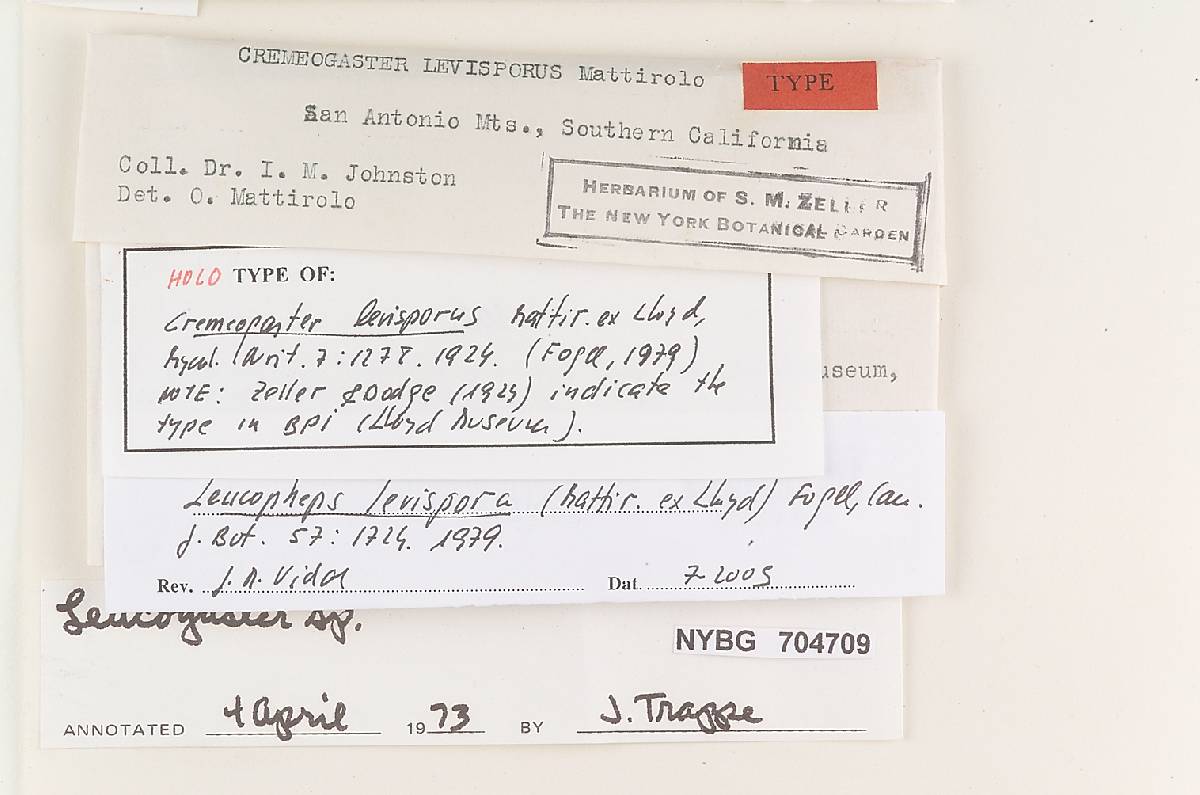 CREMEOGASTER LEVISPORUS Mattirolo
TYPE
San Antonio Mts., Southern California
Coll. Dr. I. M. Johnston
Det. O. Mattirolo
HERBARIUM OF S. M. ZELLER
THE NEW YORK BOTANICAL GARDEN
HOLO TYPE OF:
Cremeogaster levisporus Mattir. ex Lloyd,
Mycol. Writ. 7: 1278. 1924. (Fogel, 1979)
NOTE: Zeller & Dodge (1924) indicate the
type in BPI (Lloyd Museum).
useum,
Leucopheps levispora (Mattir. ex Lloyd) Fogel, Can.
J. Bot. 57: 1724. 1979.
Rev. J. M. Vidal Dat. 7-2005
Leucogaster sp.
NYBG 704709
ANNOTATED 4 April 1973 BY J. Trappe